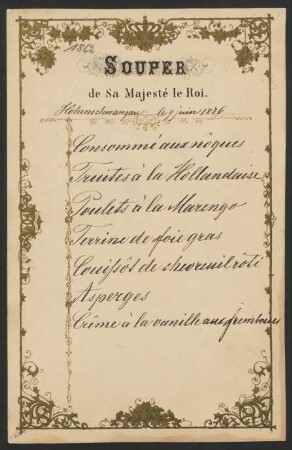 1862
SOUPER
de Sa Majesté le Roi.
Hohenschwangau le 9 juin 1886
Consommé aux nôques
Truites à la Hollandaise
Poulets à la Marengo
Terrine de foie gras
Cuissôt de chevreuil rôti
Asperges
Crême à la vanille aux framboises